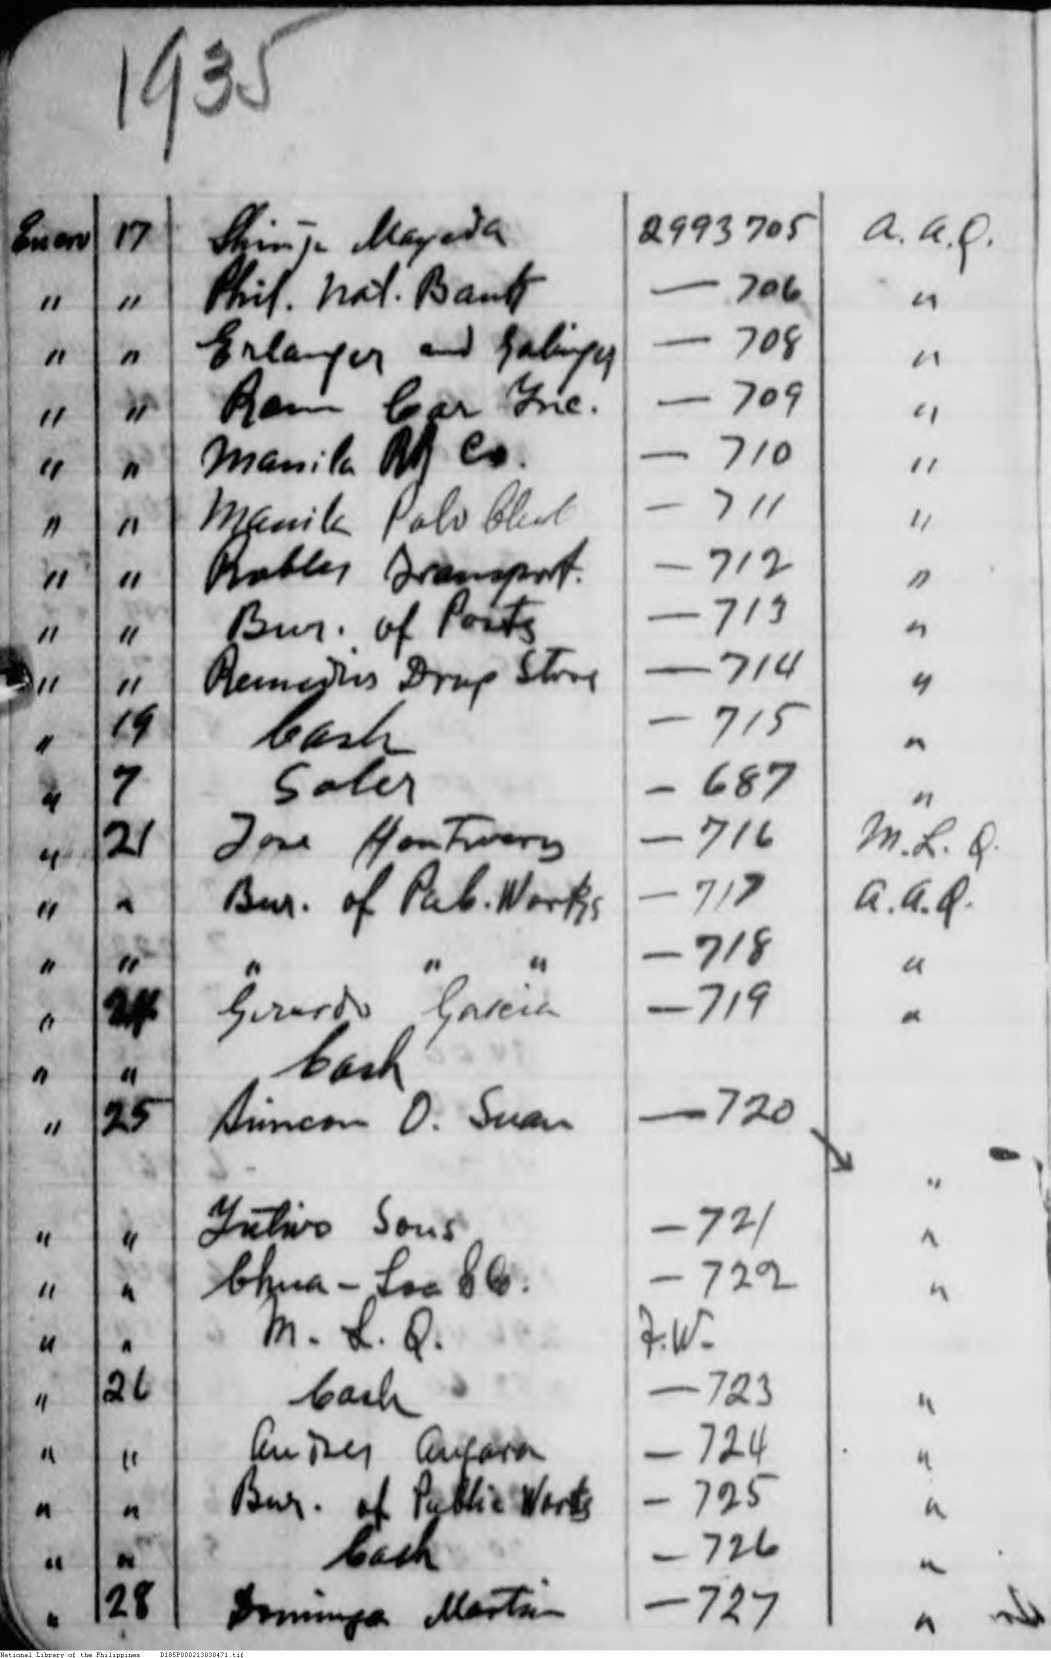 1935
Enero 17 Shinji Mayeda 2993705 A.A.Q.
" " Phil. Nat. Bank — 706 "
" " Erlanger and Galinger — 708 "
" " Car Inc. — 709 "
" " Manila RR Co. — 710 "
" " Manila Polo Club — 711 "
" " Robles Transport. — 712 "
" " Bur. of Posts — 713 "
" " Remedios Drug Store — 714 "
" 19 Cash — 715 "
" 7 Soler — 687 "
" 21 Jose — 716 M.L.Q.
" " Bur. of Pub. Works — 717 A.A.Q.
" " " " " — 718 "
" 24 Gerardo Garcia — 719 "
" " Cash
" 25 O. Suan — 720
"
" " Yutivo Sons — 721 "
" " Chua - & Co. — 722 "
" " M. L. Q. F.W.
" 26 Cash — 723 "
" " Andres Angara — 724 "
" " Bur. of Public Works — 725 "
" " Cash — 726 "
" 28 Martin — 727 "
National Library of the Philippines D185P000213838471.tif